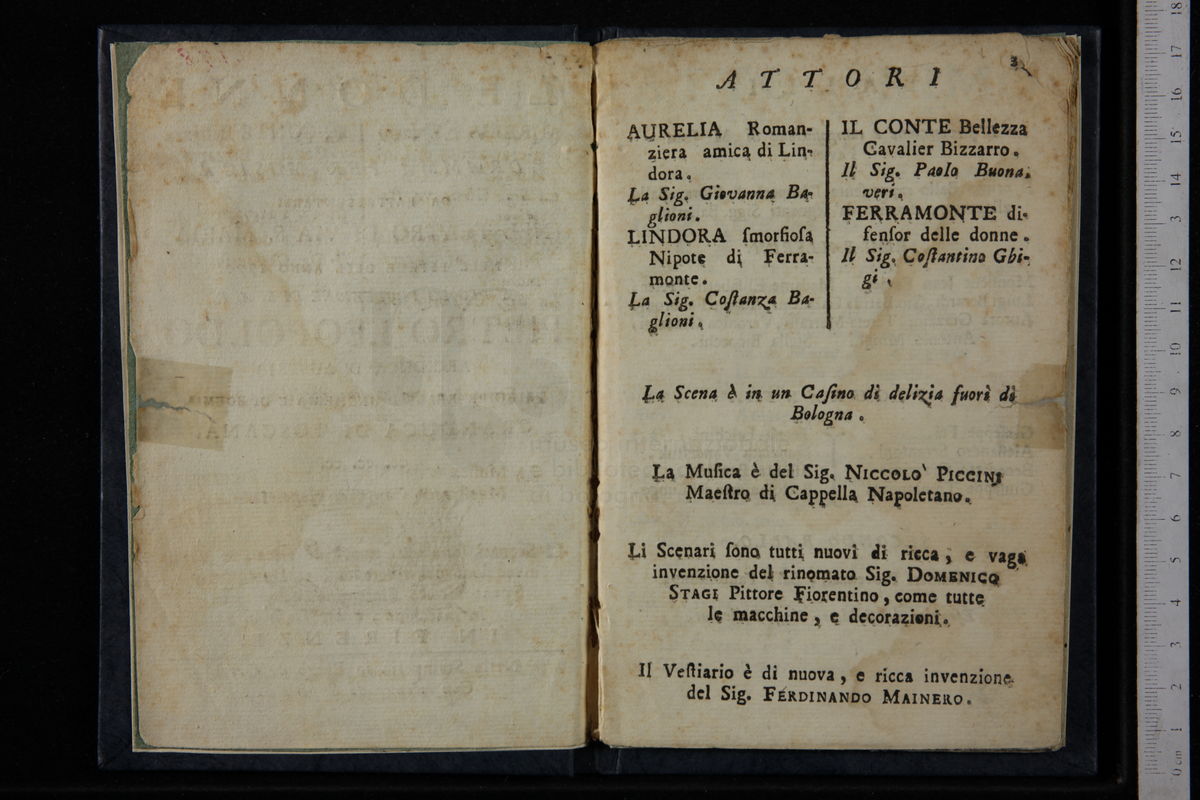 3
ATTORI
AURELIA Roman-
ziera amica di Lin-
dora.
La Sig. Giovanna Ba-
glioni.
LINDORA ſmorfioſa
Nipote di Ferra-
monte.
La Sig. Coſtanza Ba-
glioni.
IL CONTE Bellezza
Cavalier Bizzarro.
Il Sig. Paolo Buona-
veri.
FERRAMONTE di-
fenſor delle donne.
Il Sig. Coſtantino Ghi-
gi.
La Scena è in un Caſino di delizia fuori di
Bologna.
La Muſica è del Sig. NICCOLO' PICCINI
Maeſtro di Cappella Napoletano.
Li Scenari ſono tutti nuovi di ricca, e vaga
invenzione del rinomato Sig. DOMENICO
STAGI Pittore Fiorentino, come tutte
le macchine, e decorazioni.
Il Veſtiario è di nuova, e ricca invenzione
del Sig. FERDINANDO MAINERO.
0 cm 1 2 3 4 5 6 7 8 9 10 11 12 13 14 15 16 17 18